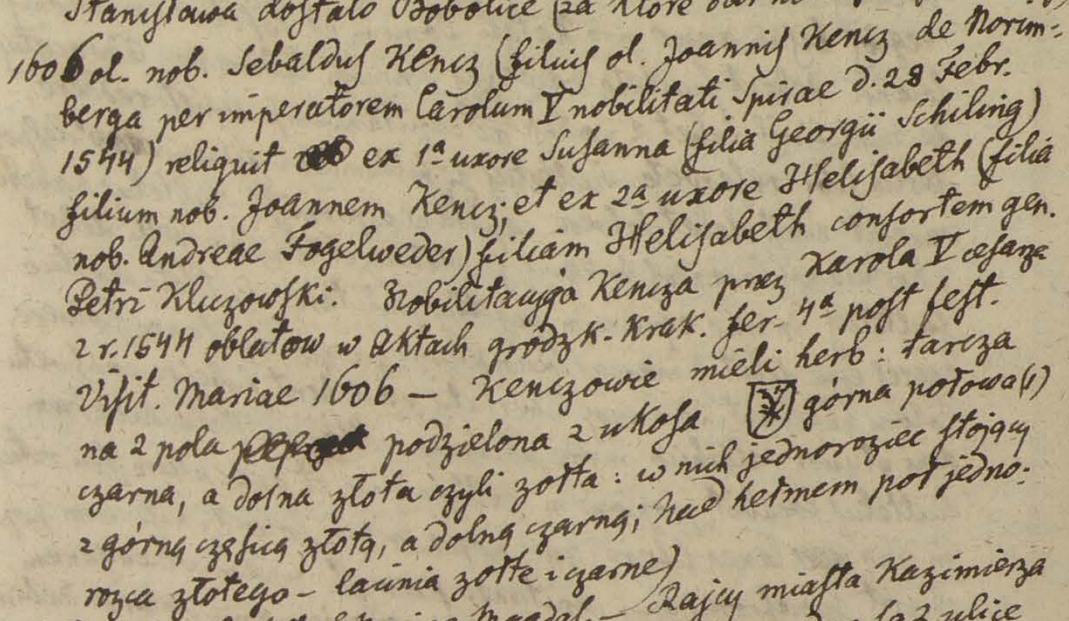 Stanisława dostało Bobolice (za które
1606 ol. nob. Sebaldus Kencz (filius ol. Joannis Kencz de Norim-
berga per imperatorem Carolum V nobilitati Spirae d. 28 Febr.
1544) reliquit ex 1ª uxore Susanna (filia Georgii Schiling)
filium nob. Joannem Kencz; et ex 2ª uxore Helisabeth (filia
nob. Andreae Fogelweder) filiam Helisabeth consortem gen.
Petri Kluzowski. Nobilitacyja Kencza przez Karola V cesarza
z r. 1544 oblatow w Aktach grodzk. Krak. fer. 4ª post fest.
Visit. Mariae 1606 — Kenczowie mieli herb: tarcza
na 2 pola podzielona z ukosa górna połowa(1)
czarna, a dolna złota czyli żołta: w nich jednoroziec stojący
z górną częścią złotą, a dolną czarną; nad hełmem poł jedno-
rozca złotego – łacinia zołte i czarne)
Rajcy miasta Kazimierza
Magdal. — ulice